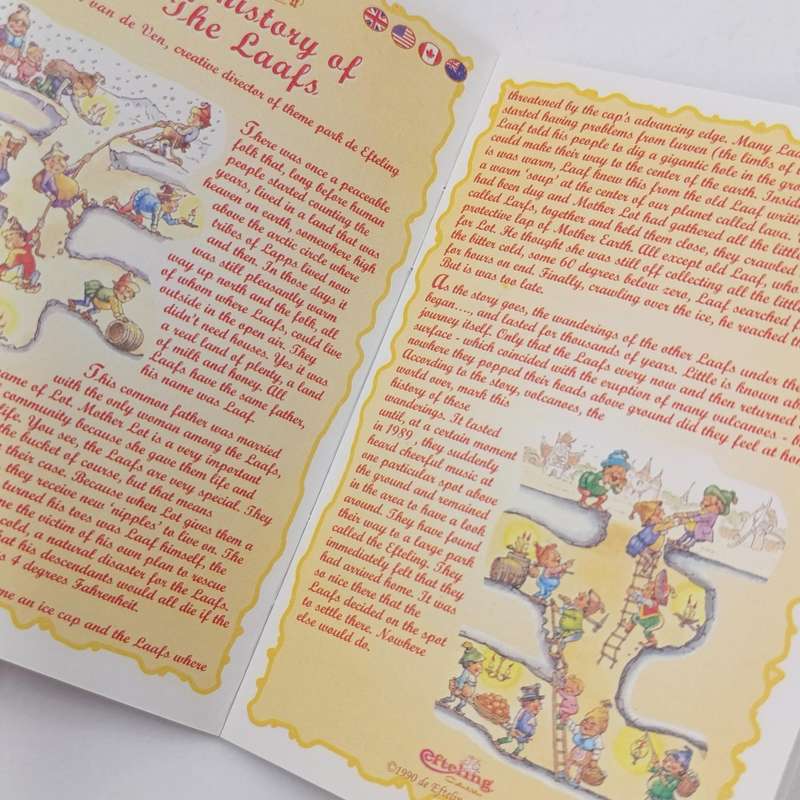 history of
The Laafs
van de Ven, creative director of theme park de Efteling
There was once a peaceable
folk that, long before human
people started counting the
years, lived in a land that was
heaven on earth, somewhere high
above the arctic circle where
tribes of Lapps lived now
and then. In those days it
was still pleasantly warm
way up north and the folk, all
of whom where Laafs, could live
outside in the open air. They
didn't need houses. Yes it was
a real land of plenty, a land
of milk and honey. All
Laafs have the same father,
his name was Laaf.
This common father was married
with the only woman among the Laafs,
name of Lot. Mother Lot is a very important
community because she gave them life and
life. You see, the Laafs are very special. They
the bucket of course, but that means
their case. Because when Lot gives them a
they receive new 'nipples' to live on. The
turned his toes was Laaf himself, the
the victim of his own plan to rescue
cold, a natural disaster for the Laafs.
that his descendants would all die if the
4 degrees Fahrenheit.
an ice cap and the Laafs where
threatened by the cap's advancing edge. Many
started having problems from luvven (the limbs of
Laaf told his people to dig a gigantic hole in the
could make their way to the center of the earth. Inside
is was warm, Laaf knew this from the old Laaf
a warm 'soup' at the center of our planet called lava.
had been dug and Mother Lot had gathered all the
called Larfs, together and held them close, they crawled
protective lap of Mother Earth. All except old Laaf, who
for Lot. He thought she was still off collecting all the
the bitter cold, some 60 degrees below zero, Laaf searched
for hours on end. Finally, crawling over the ice, he reached
But is was too late.
As the story goes, the wanderings of the other Laafs under the
began...., and lasted for thousands of years. Little is known
journey itself. Only that the Laafs every now and then returned
surface - which coincided with the eruption of many vulcanoes -
nowhere they popped their heads above ground did they feel at
According to the story, volcanoes, the
world over, mark this
history of these
wanderings. It lasted
until, at a certain moment
in 1989, they suddenly
heard cheerful music at
one particular spot above
the ground and remained
in the area to have a look
around. They have found
their way to a large park
called the Efteling. They
immediately felt that they
had arrived home. It was
a nice there that the
Laafs decided on the spot
to settle there. Nowhere
else would do.
Efteling
©1990 de Efteling